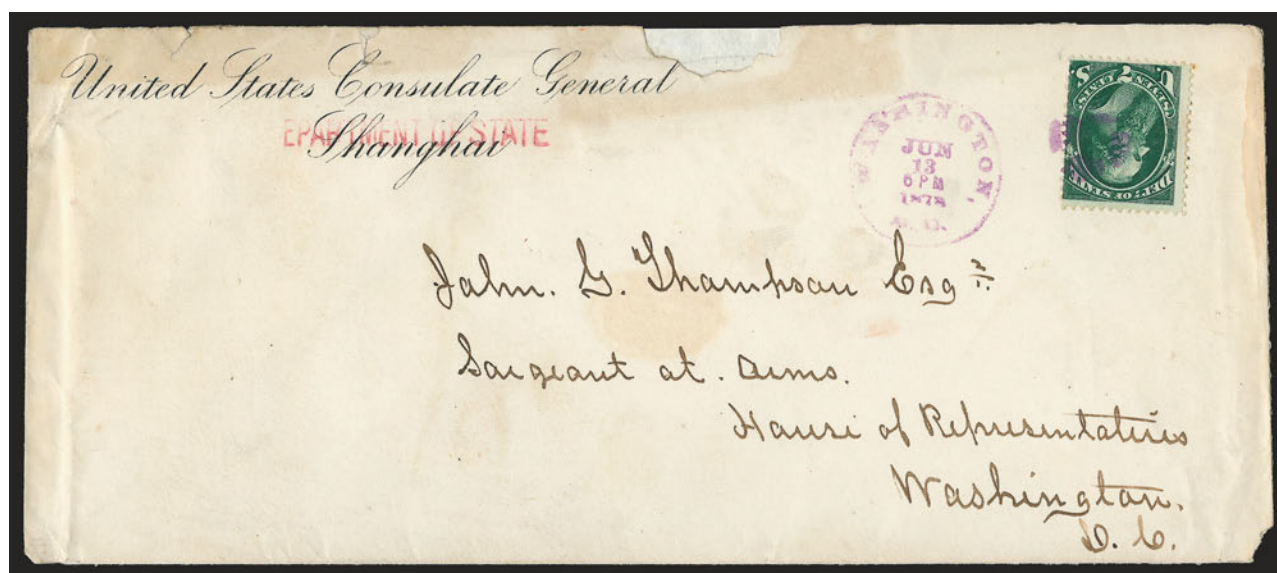 United States Consulate General
EPARTMENT OF STATE
Shanghai
WASHINGTON,
JUN
13
6 PM
1878
D.C.
U.S.
SEVEN CENTS
DEPT. OF STATE
John. G. Thompson Esqr
Sargeant at. Arms.
House of Representatives
Washington.
D. C.